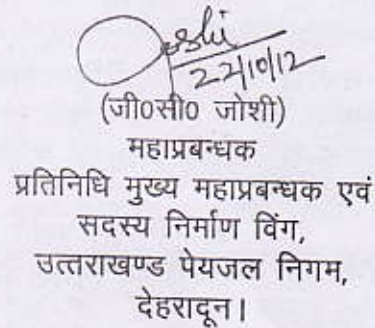 22/10/12
(जी0सी0 जोशी)
महाप्रबन्धक
प्रतिनिधि मुख्य महाप्रबन्धक एवं
सदस्य निर्माण विंग,
उत्तराखण्ड पेयजल निगम,
देहरादून।